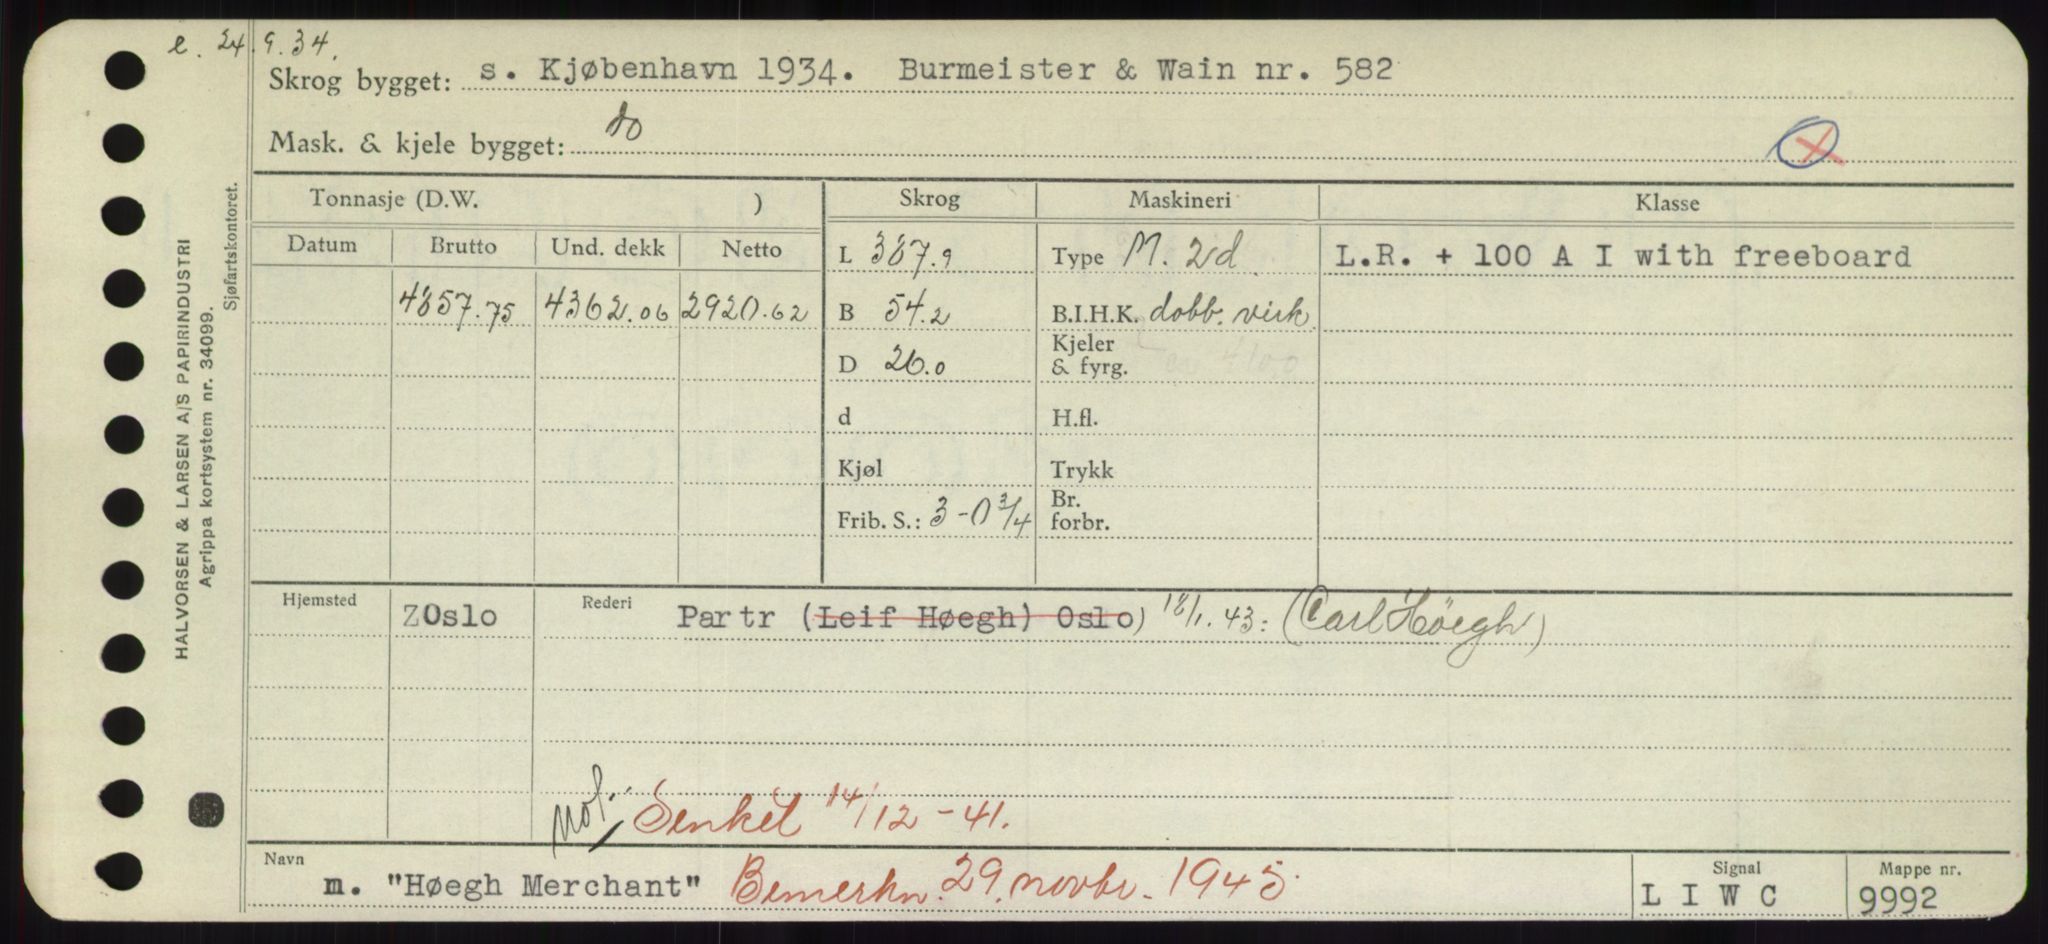 e. 24.9.34.
Skrog bygget: s. Kjøbenhavn 1934. Burmeister & Wain nr. 582
Mask. & kjele bygget: do
Tonnasje (D.W. ) Skrog Maskineri Klasse
Datum Brutto Und. dekk Netto L 387.9 Type M. 2d. L.R. + 100 A I with freeboard
4857.75 4362.06 2920.62 B 54.2 B.I.H.K. dobb. virk.
D 26.0 Kjeler & fyrg. 4100
d H.fl.
Kjøl Trykk
Frib. S.: 3-0 3/4 Br. forbr.
Hjemsted ZOslo Rederi Partr (Leif Høegh) Oslo) 18/1.43: (Carl Höegh)
Senket 14/12-41.
Navn m. "Høegh Merchant" Bemerkn. 29. novbr. 1945. Signal L I W C Mappe nr. 9992
HALVORSEN & LARSEN A/S PAPIRINDUSTRI
Agrippa kortsystem nr. 34099.
Sjøfartskontoret.